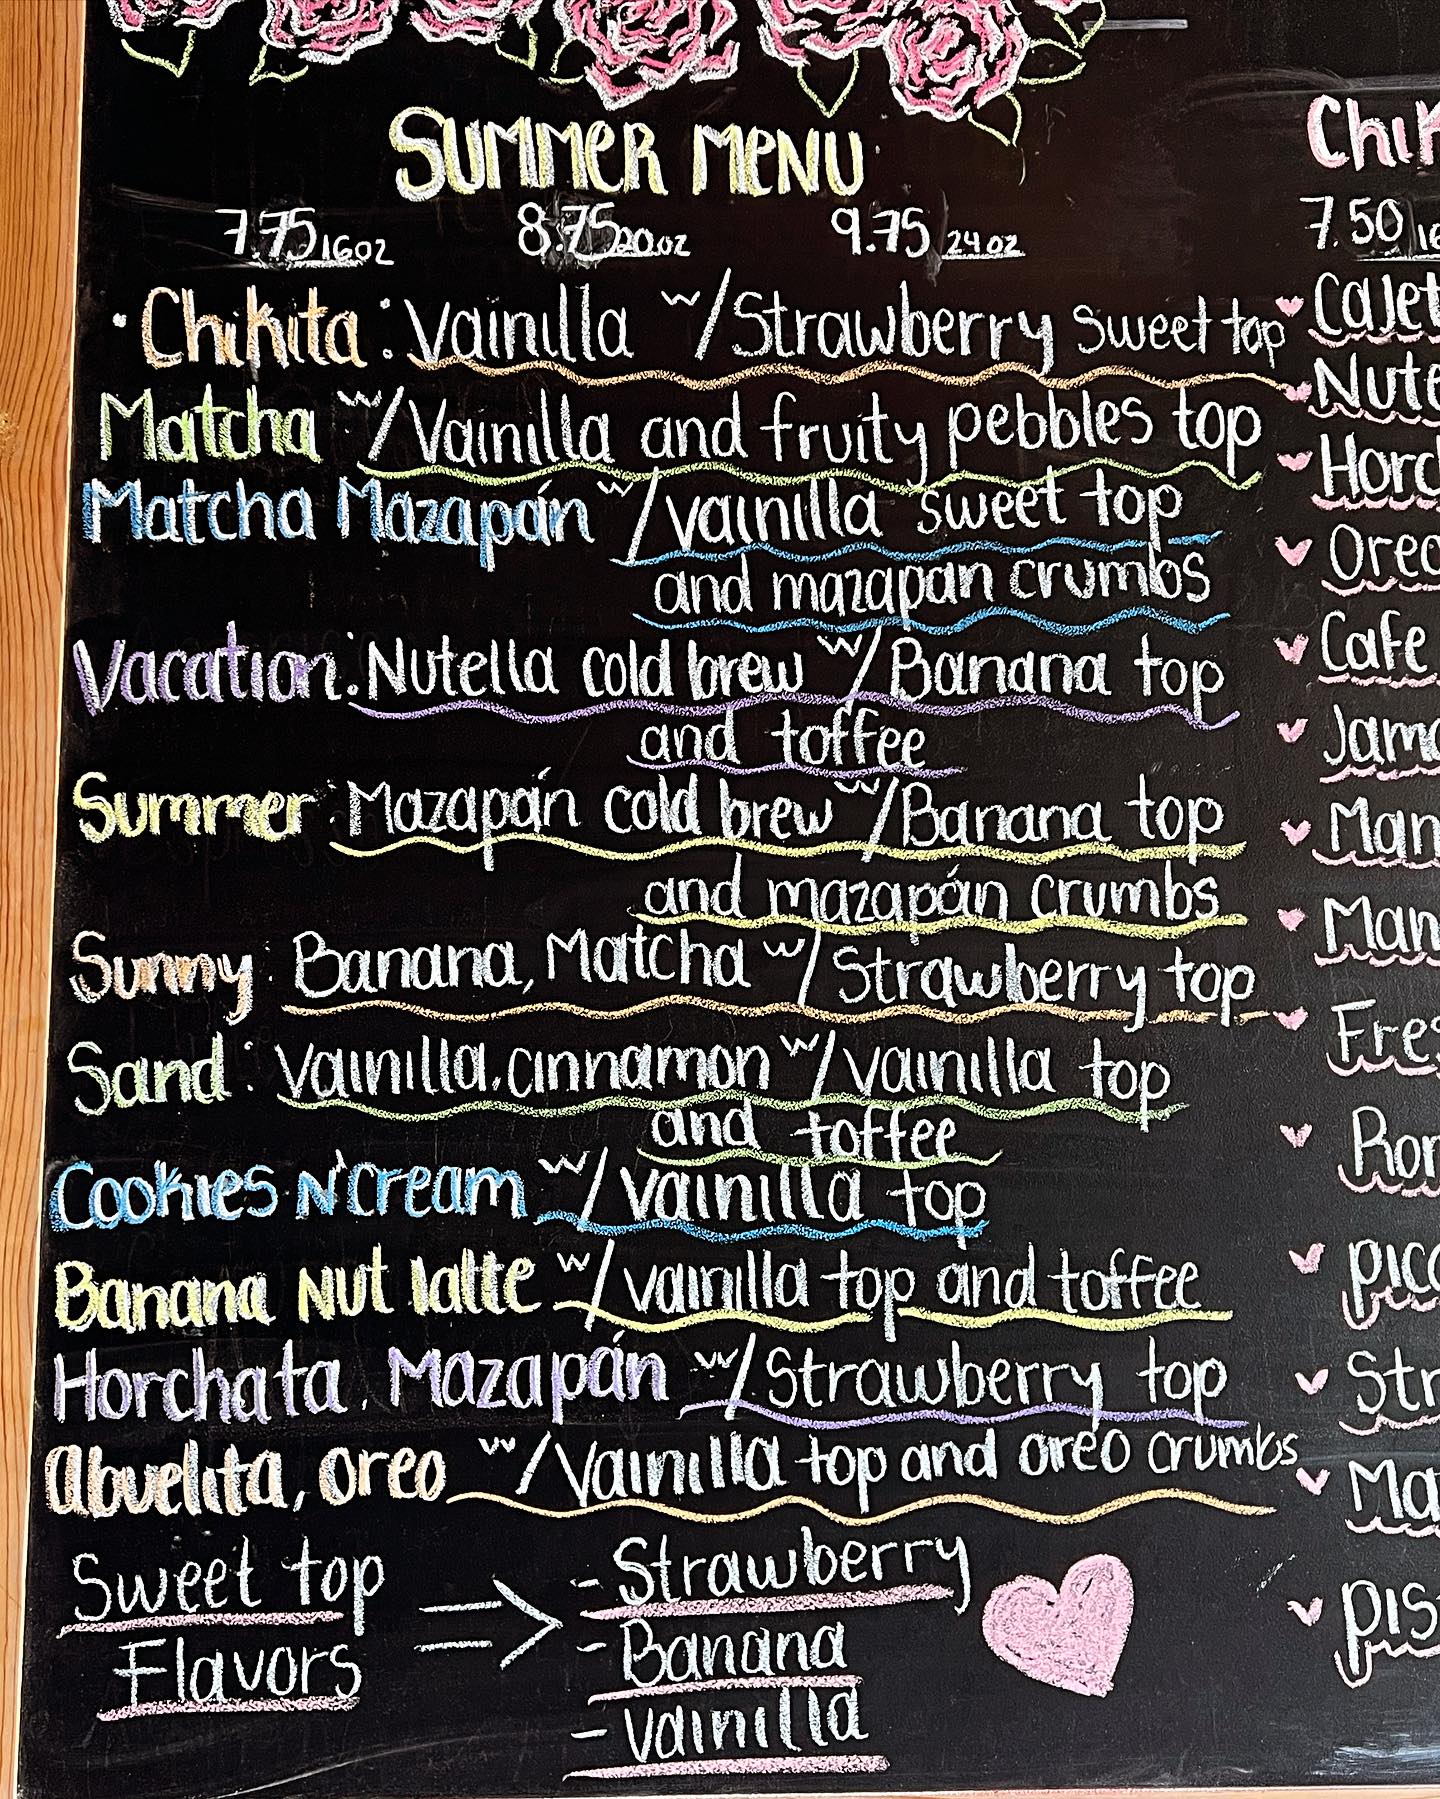 SUMMER MENU
7.75 16oz 8.75 20oz 9.75 24oz
Chikita: Vainilla w/Strawberry sweet top
Matcha w/Vainilla and fruity pebbles top
Matcha Mazapán w/vainilla sweet top
and mazapan crumbs
Vacation: Nutella cold brew w/Banana top
and toffee
Summer: Mazapán cold brew w/Banana top
and mazapán crumbs
Sunny: Banana, Matcha w/Strawberry top
Sand: Vainilla, cinnamon w/vainilla top
and toffee
Cookies N'Cream w/vainilla top
Banana Nut latte w/vainilla top and toffee
Horchata, Mazapán w/Strawberry top
Abuelita, oreo w/Vainilla top and oreo crumbs
Sweet top
Flavors
=> - Strawberry
- Banana
- Vainilla
7.50
Cafe